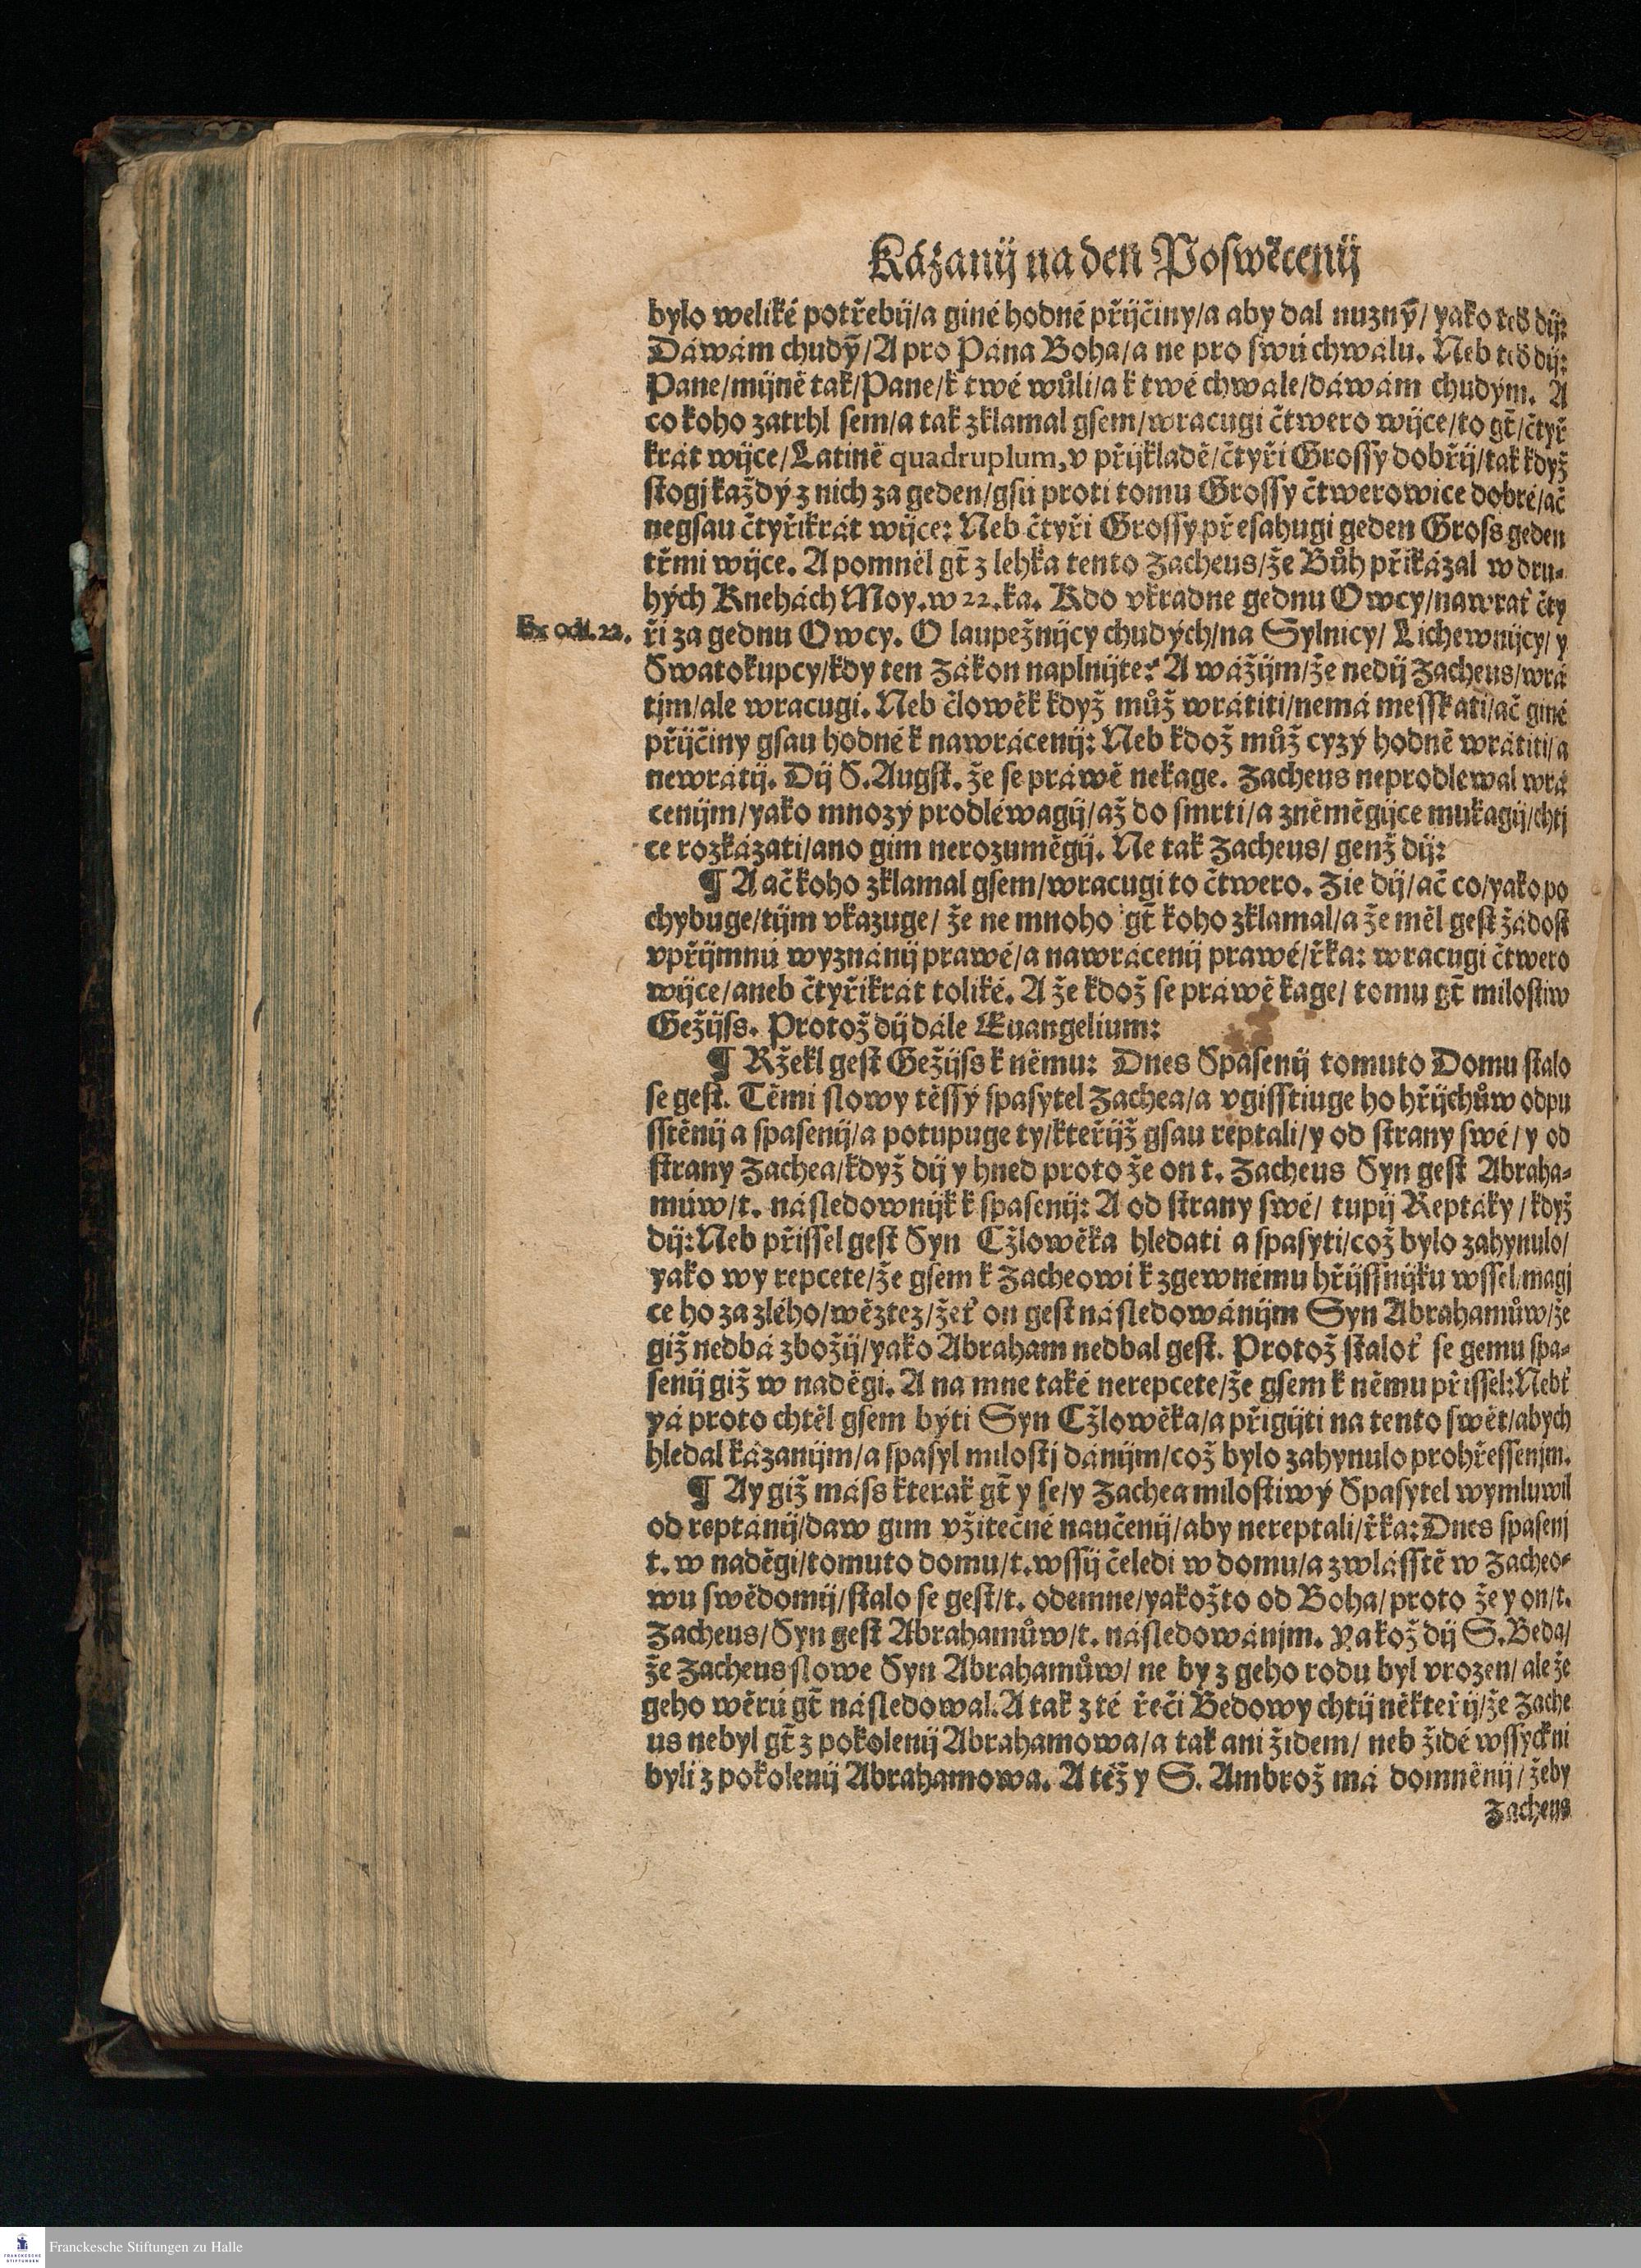 Kázanij na den Poswěcenij
bylo weliké potřebij/a giné hodné přijčiny/a aby dal nuzný̄/ yako ted dij:
Dáwám chudy̌/A pro Pána Boha/a ne pro swú chwálu. Neb ted dij:
Pane/mijně tak/Pane/k twé wůli/a k twé chwále/dáwám chudým. A
co koho zatrhl sem/a tak zklamal gsem/wracugi čtwero wijce/to gt̄/čtyř
krát wijce/Latině quadruplum, v přijkladě/čtyři Grossy dobřij/tak když
stogj každý z nich za geden/gsú proti tomu Grossy čtwerowice dobré/ač
negsau čtyřikrát wijce: Neb čtyři Grossy přesahugi geden Gross geden
třmi wijce. A pomněl gt̄ z lehka tento Zacheus/že Bůh přikázal w dru-
hých Knehách Moy. w 22. ka. Kdo vkradne gednu Owcy/nawrať čty
Exodi. 22.
ři za gednu Owcy. O laupežnijcy chudých/na Sylnicy/ Lichewnijcy/ y
Swatokupcy/kdy ten Zákon naplnijte? A wážijm/že nedij Zacheus/wrá
tjm/ale wracugi. Neb člověk když můž wrátiti/nemá messkati/ač giné
přijčiny gsau hodné k nawrácenij: Neb kdož můž cyzý hodně wrátiti/a
newrátij. Dij S. Augst. že se práwě nekage. Zacheus neprodlewal wrá
cenijm/yako mnozý prodléwagij/až do smrti/a zněměgijce mukagij/chtj
ce rozkázati/ano gim nerozumněgij. Ne tak Zacheus/ genž dij:
¶ A ač koho zklamal gsem/wracugi to čtwero. Zie dij/ač co/yako po
chybuge/tijm vkazuge/ že ne mnoho gt̄ koho zklamal/a že měl gest žádost
vpřijmnú wyznánij prawé/a nawrácenij prawé/řka: wracugi čtwero
wijce/aneb čtyřikrát toliké. A že kdož se práwě kage/ tomu gt̄ milostiw
Gežijss. Protož dij dále Ewangelium:
¶ Ržekl gest Gežijss k němu: Dnes Spasenij tomuto Domu stalo
se gest. Těmi slowy těssý spasytel Zachea/a vgisstiuge ho hřijchůw odpu
sstěnij a spasenij/a potupuge ty/kteřijž gsau reptali/y od strany swé/ y od
strany Zachea/když dij y hned proto že on t. Zacheus Syn gest Abraha-
múw/t. následownijk k spasenij: A od strany swé/ tupij Reptáky/ když
dij: Neb přissel gest Syn Cžlowěka hledati a spasyti/což bylo zahynulo/
yako wy repcete/že gsem k Zacheowi k zgewnému hřijssnijku wssel/magj
ce ho za zlého/wěztez/žeť on gest následowánijm Syn Abrahamůw/že
giž nedbá zbožij/yako Abraham nedbal gest. Protož staloť se gemu spa-
senij giž w naděgi. A na mne také nerepcete/že gsem k němu přissel: Nebť
yá proto chtěl gsem býti Syn Cžlowěka/a přigijti na tento swět/abych
hledal kázanijm/a spasyl milostj dánijm/což bylo zahynulo prohřessenjm.
¶ Ay giž máss kterak gt̄ y se/y Zachea milostiwý Spasytel wymluwil
od reptánij/daw gim vžitečné naučenij/aby nereptali/řka: Dnes spasenj
t. w naděgi/tomuto domu/t. wssij čeledi w domu/a zwlásstě w Zacheo-
wu swědomij/stalo se gest/t. odemne/yakožto od Boha/ proto že y on/t.
Zacheus/Syn gest Abrahamůw/t. následowánjm. Yakož dij S. Beda/
že Zacheus slowe Syn Abrahamůw/ ne by z geho rodu byl vrozen/ ale že
geho wěrú gt̄ následowal. A tak z té řeči Bedowy chtij někteřij/že Zache
us nebyl gt̄ z pokolenij Abrahamowa/a tak ani židem/ neb židé wssyckni
byli z pokolenij Abrahamowa. A též y S. Ambrož má domněnij/ žeby
Zacheus
Franckesche Stiftungen zu Halle